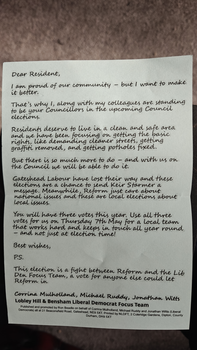 Dear Resident,
I am proud of our community – but I want to make
it better.
That's why I, along with my colleagues are standing
to be your Councillors in the upcoming Council
elections.
Residents deserve to live in a clean and safe area
and we have been focusing on getting the basic
rights, like demanding cleaner streets, getting
graffiti removed, and getting potholes fixed.
But there is so much more to do – and with us on
the Council we will be able to do it.
Gateshead Labour have lost their way and these
elections are a chance to send Keir Starmer a
message. Meanwhile, Reform just care about
national issues and these are local elections about
local issues.
You will have three votes this year. Use all three
votes for us on Thursday 7th May for a local team
that works hard and keeps in touch all year round,
– and not just at election time!
Best wishes,
P.S.
This election is a fight between Reform and the Lib
Dem Focus Team, a vote for anyone else could let
Reform in
Corrina Mulholland, Michael Ruddy, Jonathan Watts
Lobley Hill & Bensham Liberal Democrat Focus Team